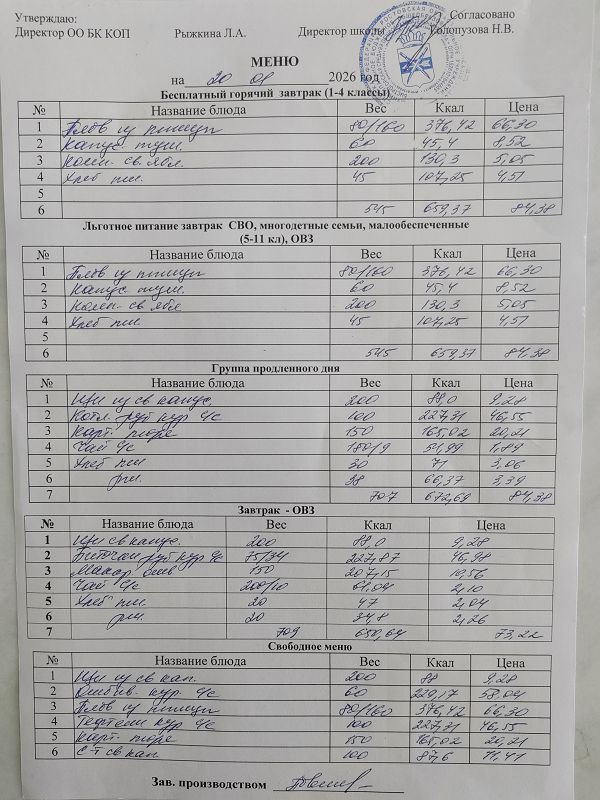 Утверждаю: Согласовано
Директор ОО БК КОП Рыжкина Л.А. Директор школы Голопузова Н.В.
МЕНЮ
на 20 01 2026 год
Бесплатный горячий завтрак (1-4 классы)
№ Название блюда Вес Ккал Цена
1 Плов из птицы 80/160 376,42 66,30
2 Капус туш. 60 45,4 8,52
3 Комп. св. ябл. 200 130,3 5,05
4 Хлеб пш. 45 107,25 4,51
5
6 545 659,37 84,38
Льготное питание завтрак СВО, многодетные семьи, малообеспеченные
(5-11 кл), ОВЗ
№ Название блюда Вес Ккал Цена
1 Плов из птицы 80/160 376,42 66,30
2 Капус туш. 60 45,4 8,52
3 Комп. св ябл 200 130,3 5,05
4 Хлеб пш 45 107,25 4,51
5
6 545 659,37 84,38
Группа продленного дня
№ Название блюда Вес Ккал Цена
1 Щи из св капус. 200 88,0 9,28
2 Котл. руб кур ч/с 100 227,31 46,55
3 Карт. пюре 150 165,02 20,21
4 Чай ч/с 180/9 51,99 1,89
5 Хлеб пш 30 71 3,06
6 рж. 38 66,37 3,39
7 707 672,69 84,38
Завтрак - ОВЗ
№ Название блюда Вес Ккал Цена
1 Щи св капус. 200 88,0 9,28
2 Биточки руб кур ч/с 75/34 227,87 46,98
3 Макар 150 207,15 10,56
4 Чай ч/с 200/10 61,04 2,10
5 Хлеб пш. 20 47 2,04
6 рж. 20 34,8 2,26
7 709 650,64 73,22
Свободное меню
№ Название блюда Вес Ккал Цена
1 Щи из св кап. 200 88 9,28
2 Отбив. кур. ч/с 60 229,17 58,04
3 Плов из птицы 80/160 376,42 66,30
4 Тефтели кур ч/с 100 227,31 46,55
5 Карт. пюре 150 165,02 20,21
6 С-т св кап. 100 87,6 11,41
Зав. производством